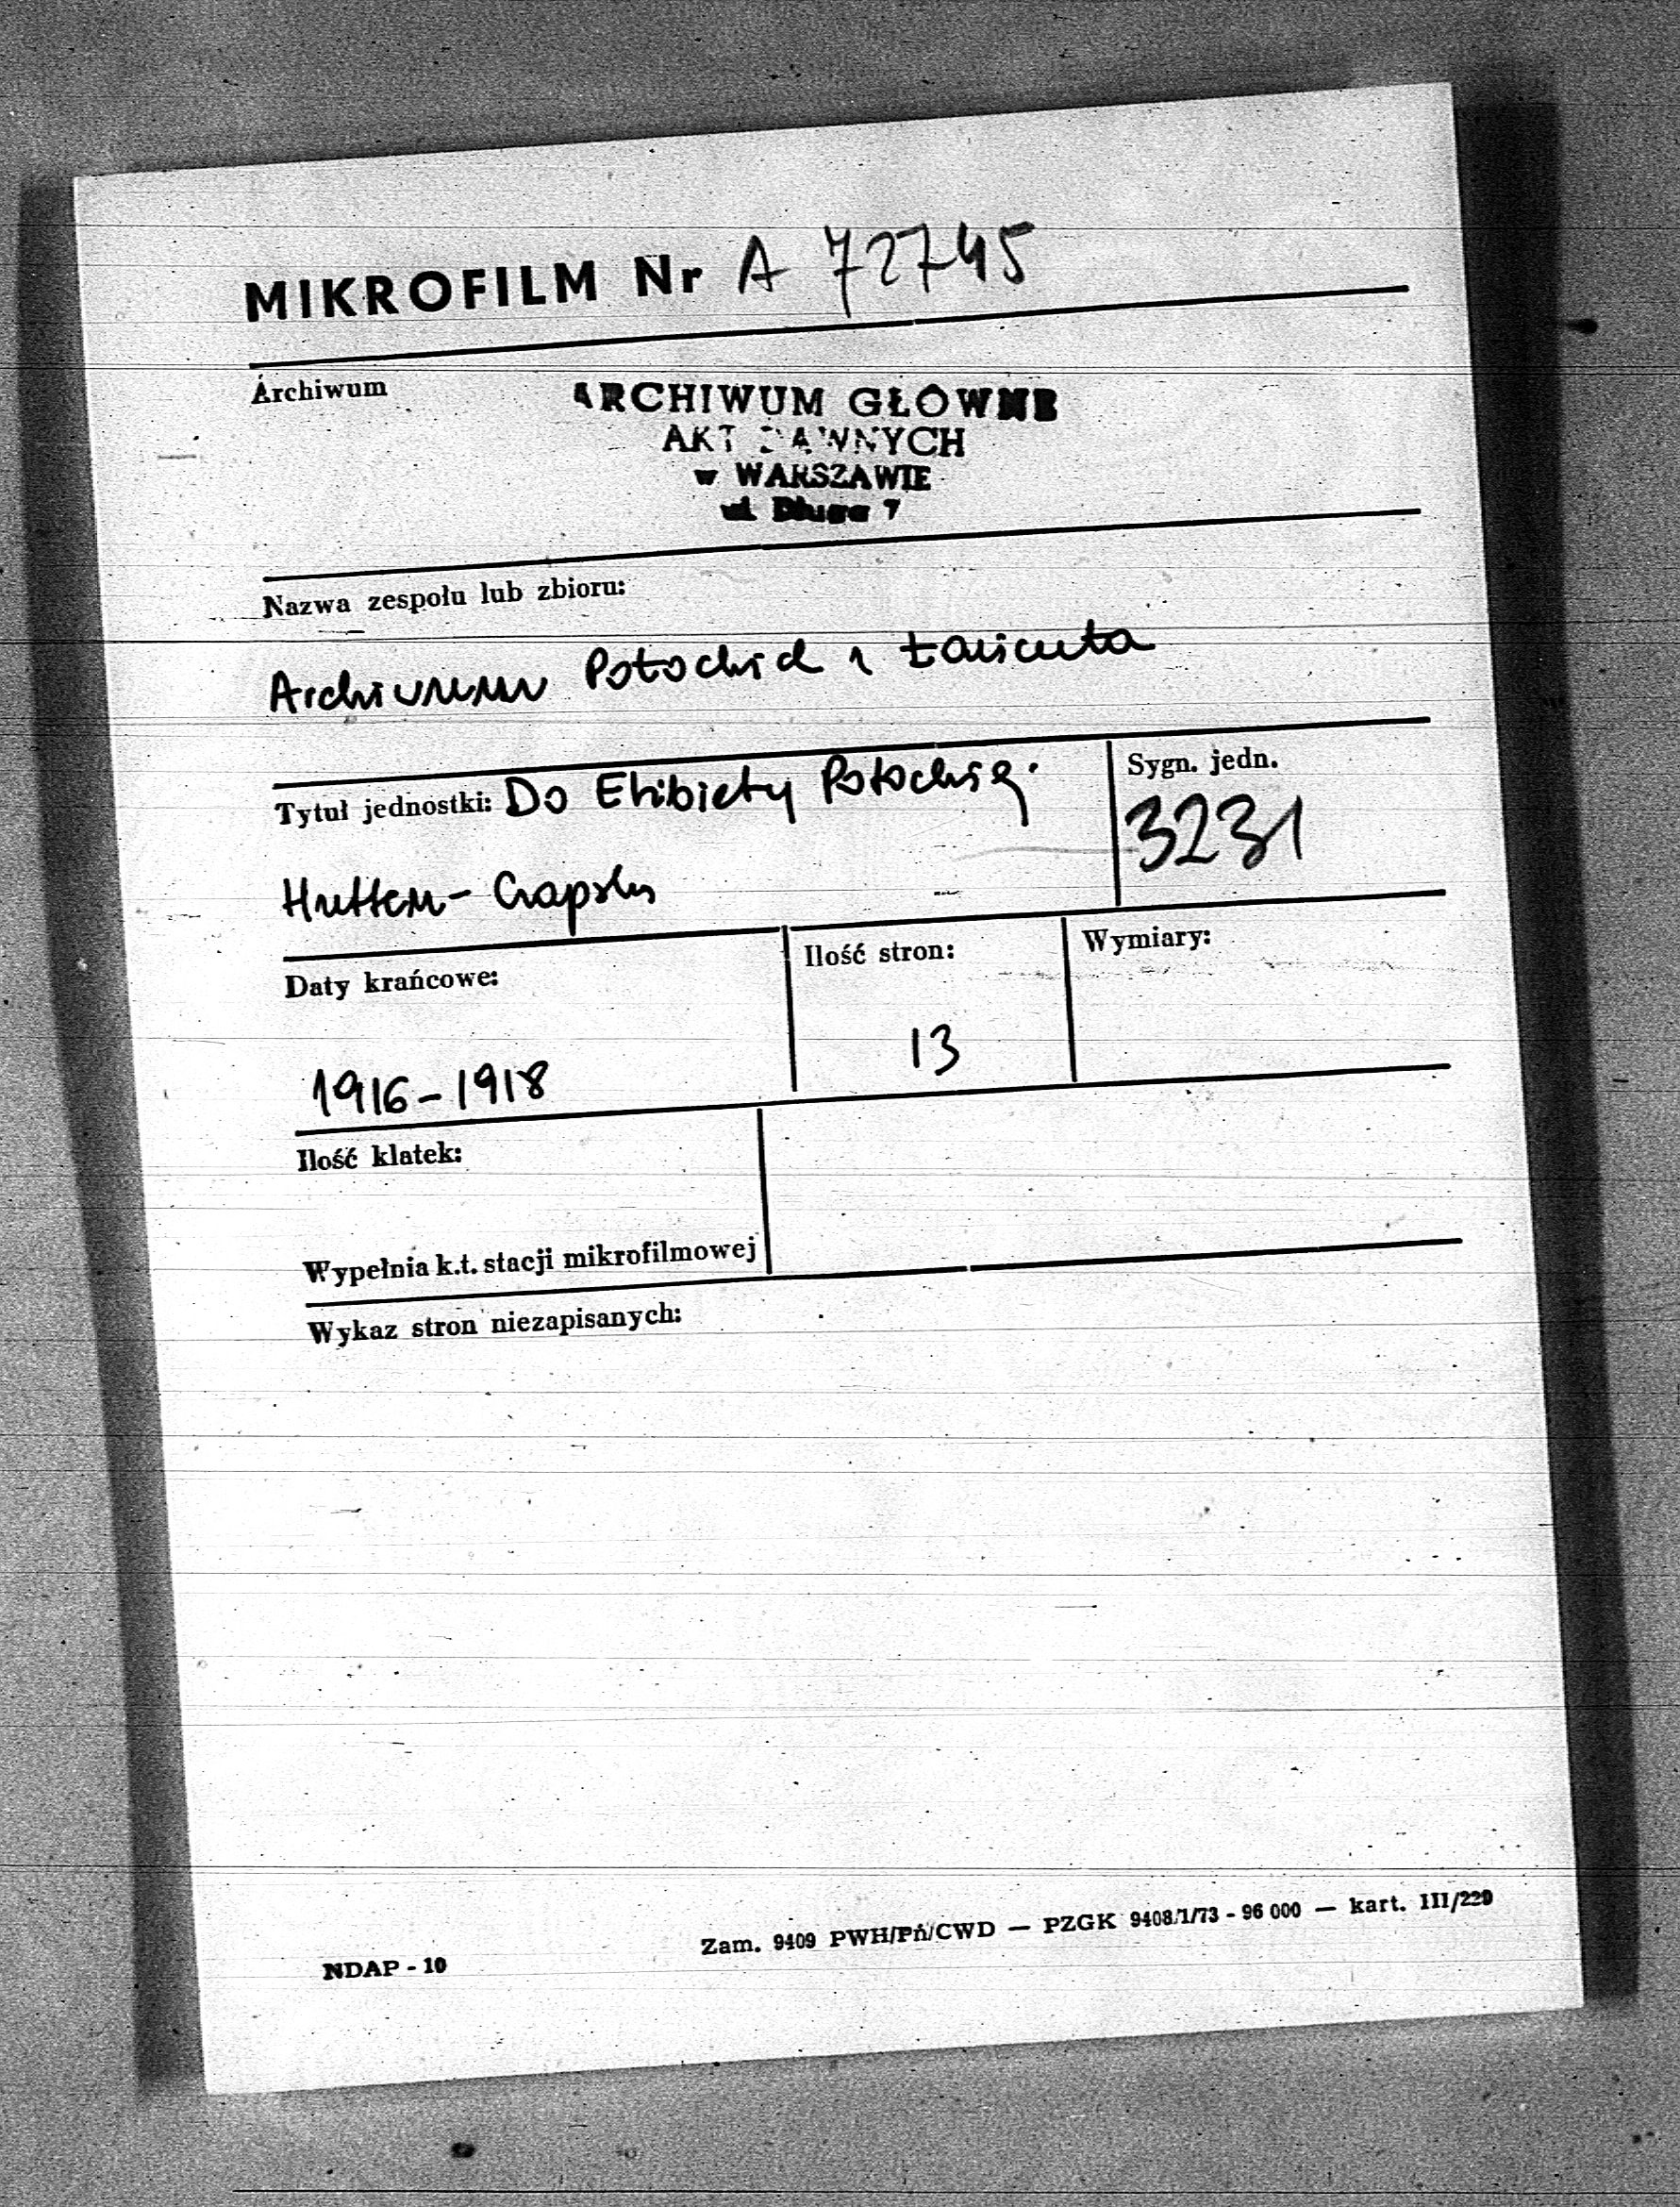 MIKROFILM Nr A 72745
Archiwum
ARCHIWUM GŁÓWNE
AKT DAWNYCH
w WARSZAWIE
ul. Długa 7
Nazwa zespołu lub zbioru:
Archiwum Potockich z Łańcuta
Tytuł jednostki: Do Elżbiety Potockiej.
Sygn. jedn.
3231
Hutten-Czapsky
Daty krańcowe:
Ilość stron:
Wymiary:
1916-1918
13
Ilość klatek:
Wypełnia k.t. stacji mikrofilmowej
Wykaz stron niezapisanych:
NDAP - 10
Zam. 9409 PWH/Pń/CWD — PZGK 9408/1/73 - 96 000 — kart. III/220